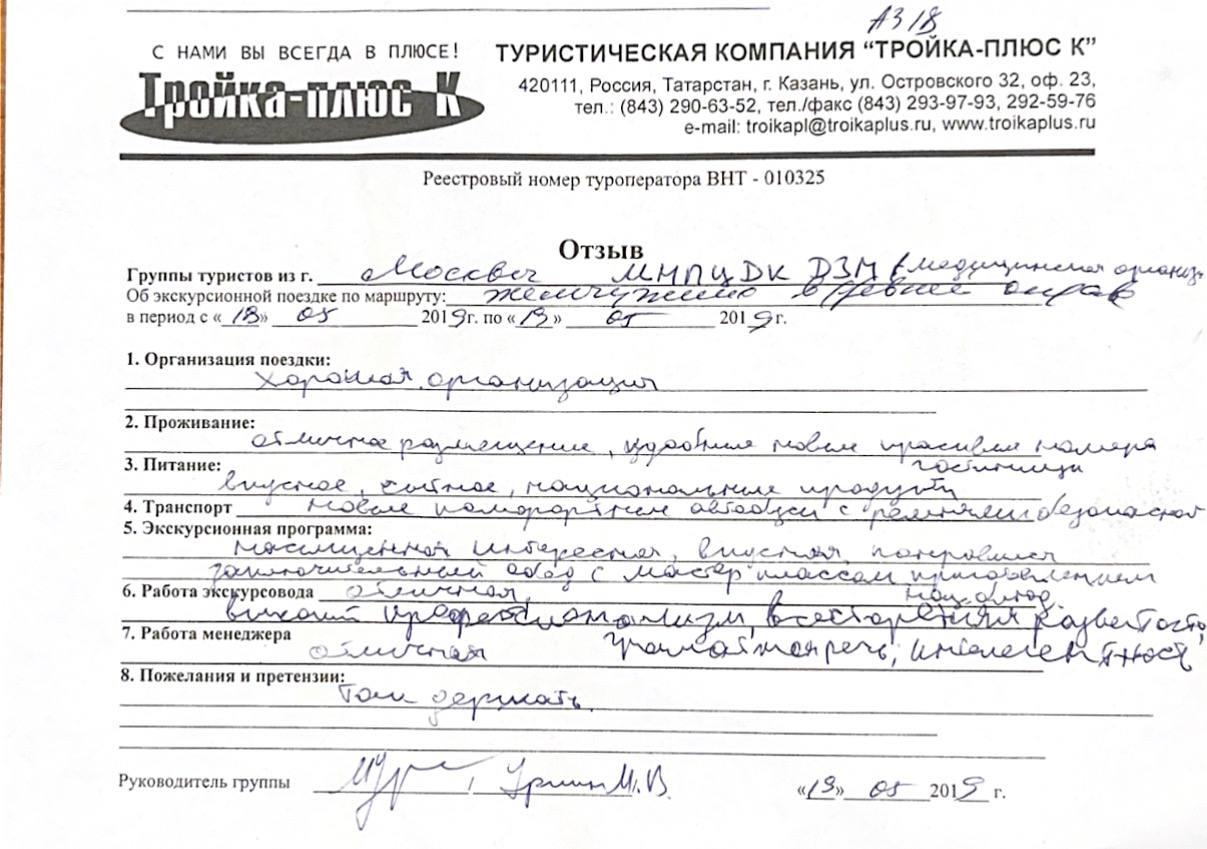 АЗ 18
С НАМИ ВЫ ВСЕГДА В ПЛЮСЕ!
Тройка-плюс К
ТУРИСТИЧЕСКАЯ КОМПАНИЯ “ТРОЙКА-ПЛЮС К”
420111, Россия, Татарстан, г. Казань, ул. Островского 32, оф. 23,
тел.: (843) 290-63-52, тел./факс (843) 293-97-93, 292-59-76
e-mail: troikapl@troikaplus.ru, www.troikaplus.ru
Реестровый номер туроператора ВНТ - 010325
Отзыв
Группы туристов из г. Москвы МНПЦДК ДЗМ (медицинская организ
Об экскурсионной поездке по маршруту: жемчужина в древней оправе
в период с «18» 05 2019г. по «19» 05 2019г.
1. Организация поездки:
хорошая организация
2. Проживание:
отличное размещение, удобные новые красивые номера
гостиницы
3. Питание:
вкусное, сытное, национальные продукты
4. Транспорт новые комфортные автобусы с ремнями безопасной
5. Экскурсионная программа:
насыщенная интересная, вкусная понравился
заключительный обед с мастер классом приготовлением
нац. блюд
6. Работа экскурсовода отличная,
высокий профессионализм, всесторонняя развитость,
грамотная речь, интелегентность
7. Работа менеджера
отличная
8. Пожелания и претензии:
Так держать.
Руководитель группы М.В.
«19» 05 2019 г.